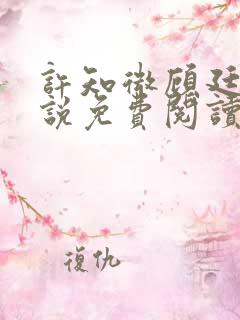 許知微顧廷
說免費閱讀
復仇